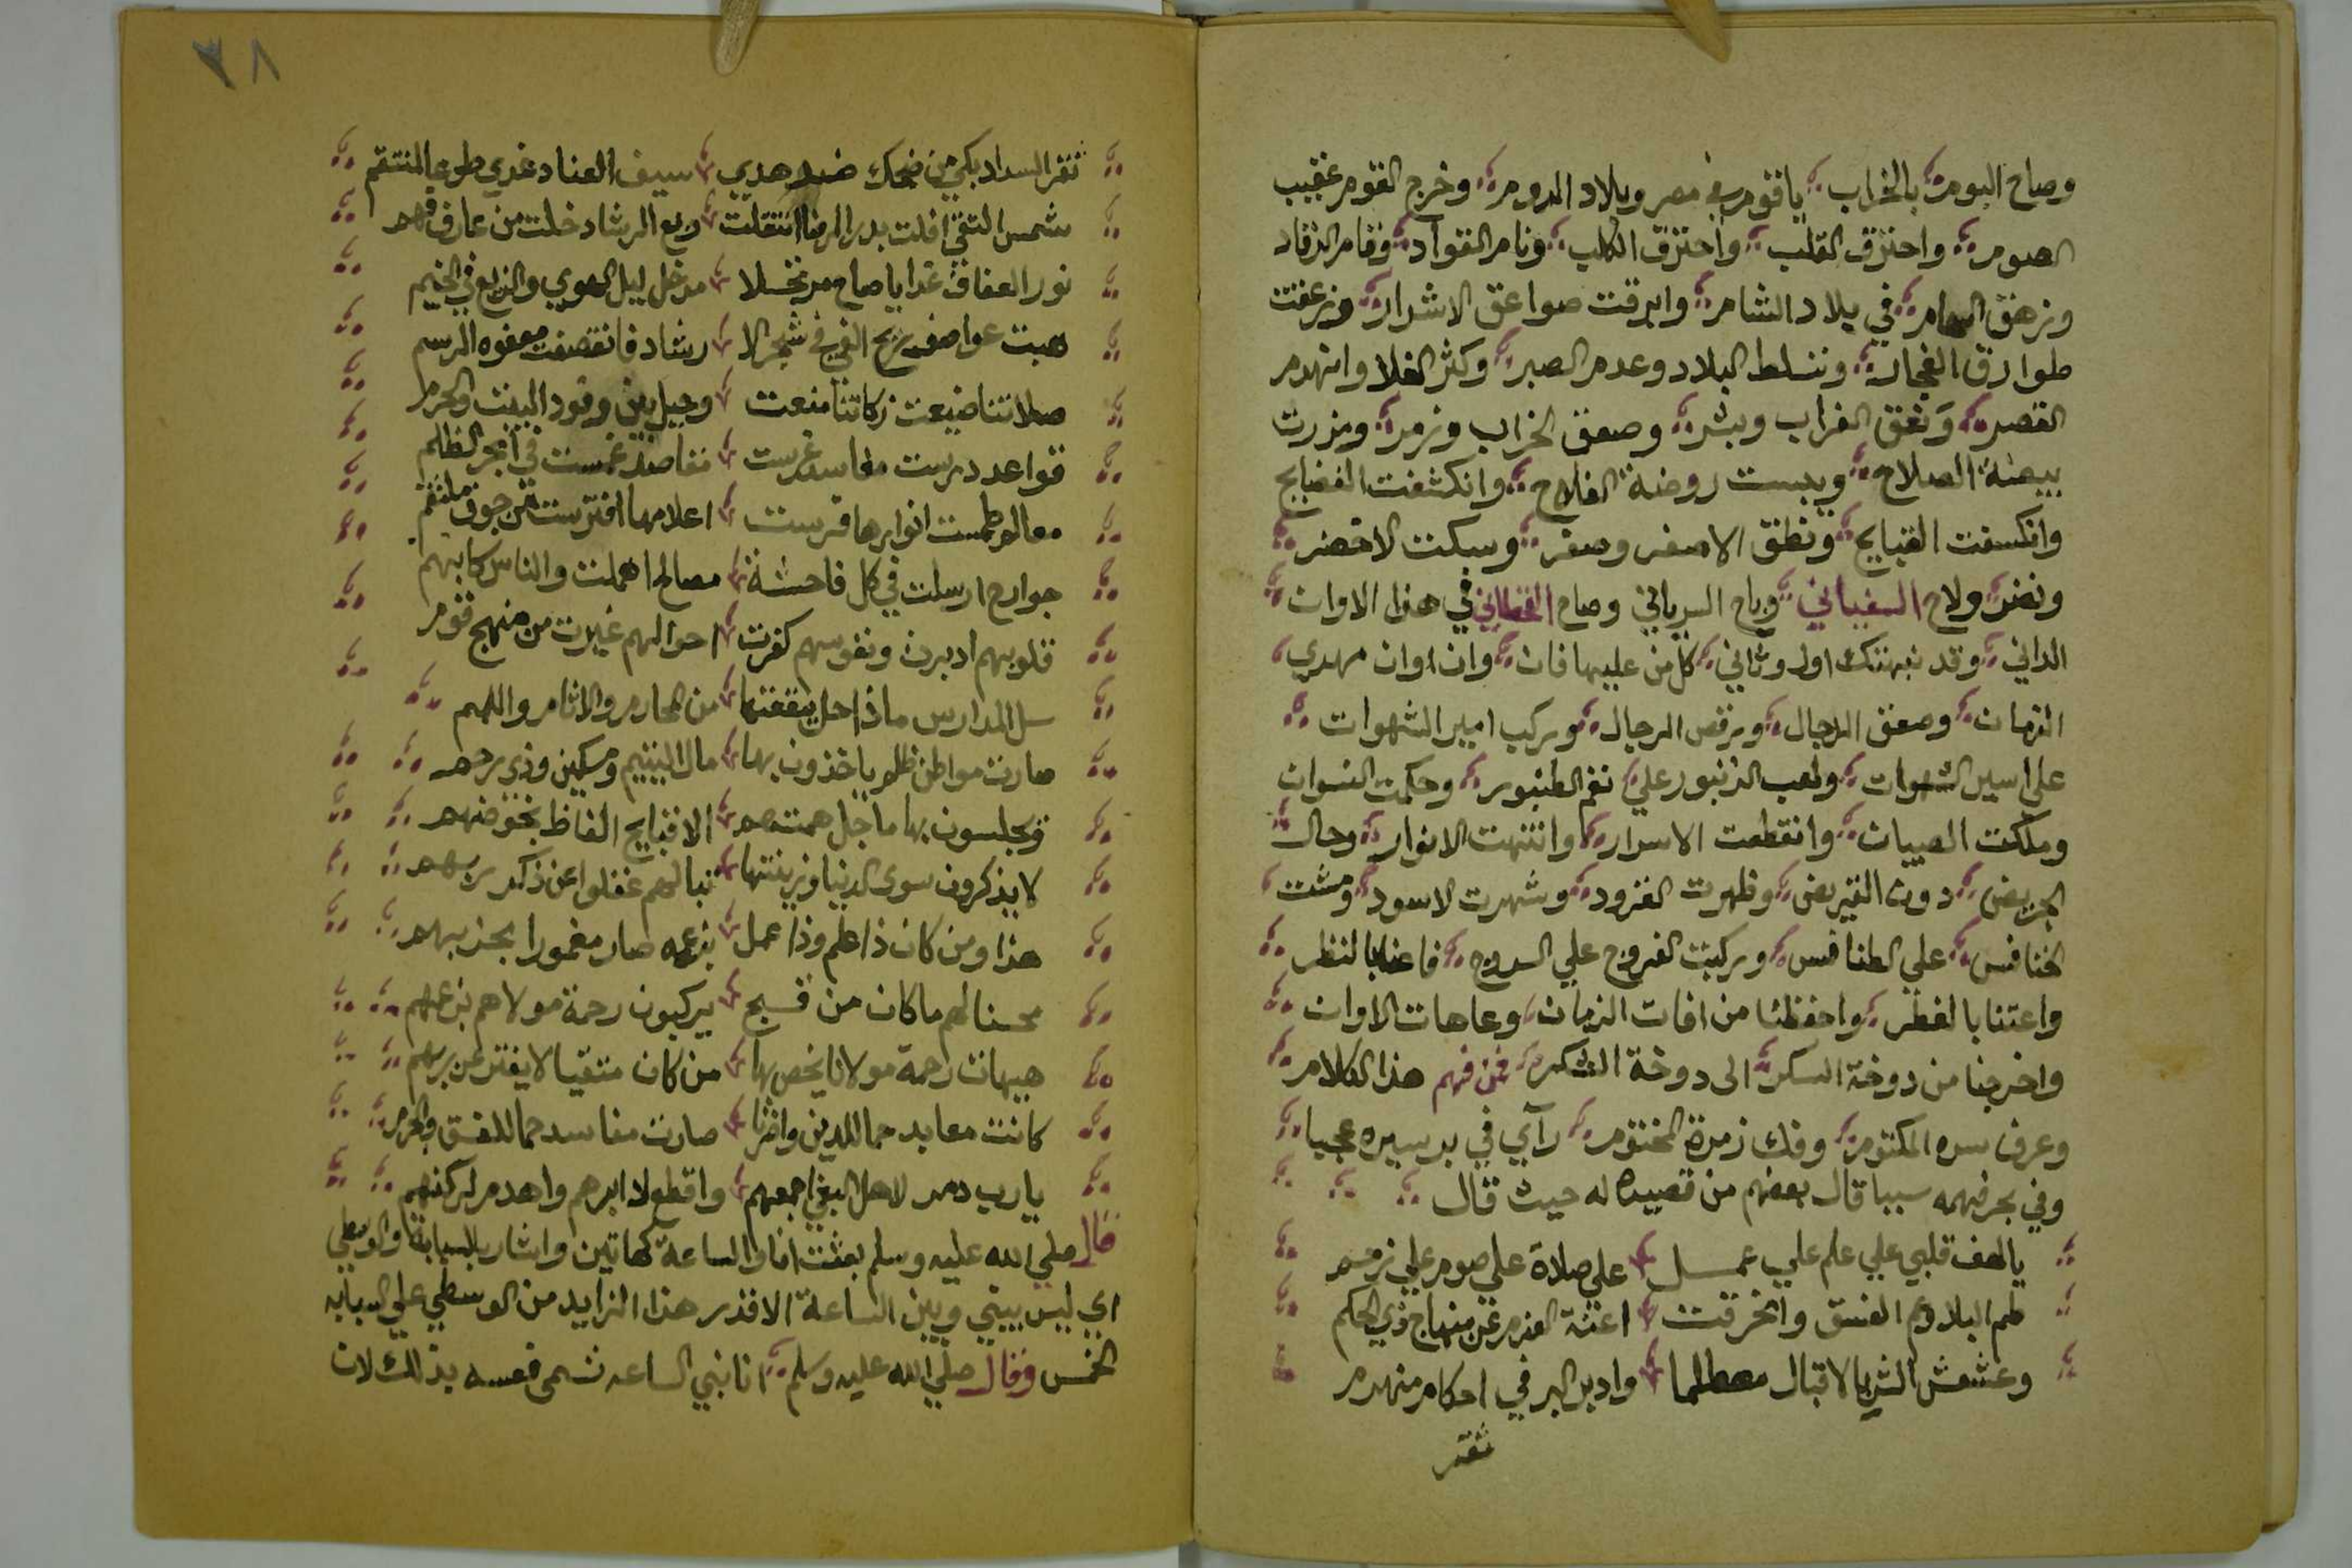 وصاح البوم بالخراب يا قوم في مصر وبلاد الروم وخرج القوم عقيب
الصوم واحترق القلب واحترق الكلب ونام الفوآد وقام الرقاد
وزهق السهام في بلاد الشام وابرقت صواعق الاشرار وزعقت
طوارق الفجار وتسلط البلاد وعدم الصبر وكثر الغلا وانهدم
القصر وَنعق الغراب وبشر وصعق الخراب وزمر ومزرت
بيضة الصلاح ويبست روضة الفلاح وانكشفت الفضايح
وانكسفت القبايح ونطق الاصفر وصفر وسكت الاخضر
ونضر ولاح السفياني وباح السرياني وصاح القحطاني في هذا الاوان
الداني وقد نبهتك اول وثاني كل من عليها فان وان اوان مهدي
الزمان وصعق الدجال ورقص الرجال وركب امير الشهوات
على اسير الشهوات ولعب الزنبور علي نغم الطنبور وحكمت النسوان
وملكت الصبيان وانقطعت الاسرار وانتهت الانوار وحال
الجريض دون القريض وظهرت القرود وشهرت الاسود ومشت
الخنافس علي الطنافس وركبت الفروج علي السروج فاعنا بالنظر
واعتنا بالفطر واحفظنا من افات الزمان وعاهات الاوان
واخرجنا من دوخة السكر الى دوخة الشكر فمن فهم هذا الكلام
وعرف سره المكتوم وفك زمرة المختوم رآي في بر سيره عجبا
وفي بحر فهمه سببا قال بعضهم من قصيدة له حيث قال
يا لهف قلبي علي علم علي عمــل علي صلاة علي صوم علي زحم
طم البلاد يم الفسق وانخرقت اعنة العزم عن منهاج ذي الحكم
وعشعش الشر بالاقبال مصطلما وادبر البر في احكام منهدم
ثغر
٣٨
ثغر السداد بكي من ضحك ضد هدي سيف العناد غدي طوعا لمنتقم
شمس التقى افلت بدر الرضا انتقلت ربع الرشاد خلت من عارف فهم
نور العفاف غدا يا صاح مرتحلا مذ حل ليل الهوي والزيغ في الخيم
هبت عواصف ريح الغي في شجر الا رشاد فانقصفت معفوه الرسم
صلاتنا ضيعت زكاتنا منعت وحيل بين وفود البيت والحرم
قواعد درست مفاسد غرست مقاصد غمست في ابحر الظلم
معالم طمست انوارها فرست اعلامها افترست من جوف ملتقم
جوارح ارسلت في كل فاحشة مصالح اهملت والناس كالبهم
قلوبهم ادبرت ونفوسهم كفرت احوالهم غيرت من منهج قوم
سل المدارس ماذا حل بقعتها من المحارم والاثام واللمم
صارت مواطن ظلم ياخذون بها مال اليتيم ومسكين وذي رحم
ويجلسون بها ما جل همتهم الا قبايح الفاظ بخوضهم
لا يذكرون سوى الدنيا وزينتها تبا لهم غفلوا عن ذكر ربهم
هذا ومن كان ذا علم وذا عمل بزعمه صار مغمورا بحزبهم
محسنا لهم ما كان من قبح يركبون رحمة مولاهم بزعمهم
هيهات رحمة مولانا يخص بها من كان متقيا لا يفتر عن برهم
كانت معابد حما للدين واقرا صارت مفاسد حما للفسق والجرم
يا رب دمر لاهل البغي اجمعهم واقطع لدابرهم واهدم لركنهم
قال صلي الله عليه وسلم بعثت انا والساعة كهاتين واشار بالسبابة والوسطي
اي ليس بيني وبين الساعة الا قدر هذا الزايد من الوسطي علي السبابه
الخمس وقال صلي الله عليه وسلم انا نبي الساعه تسمى نفسه بذلك لان